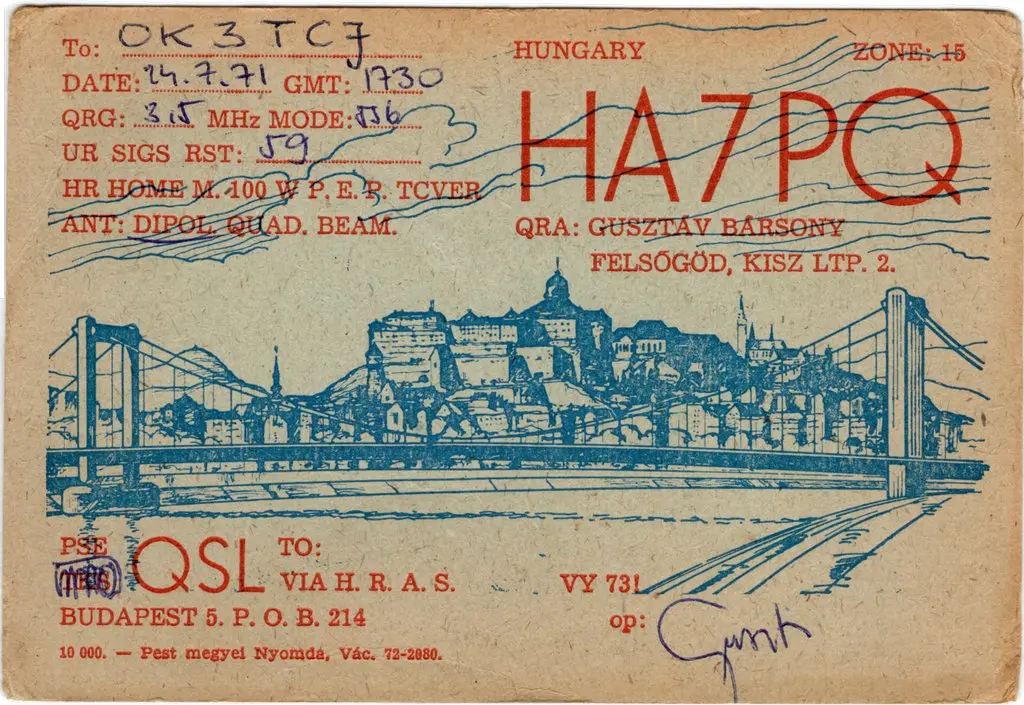 To: OK3TCJ
DATE: 24.7.71 GMT: 1730
QRG: 3,5 MHz MODE: SSB
UR SIGS RST: 59
HR HOME M. 100 W P. E. P. TCVER
ANT: DIPOL. QUAD. BEAM.
HUNGARY ZONE: 15
HA7PQ
QRA: GUSZTÁV BÁRSONY
FELSŐGÖD, KISZ LTP. 2.
PSE QSL TO:
VIA H. R. A. S.
BUDAPEST 5. P. O. B. 214
10 000. — Pest megyei Nyomda, Vác. 72-2080.
VY 73!
op: Guszti